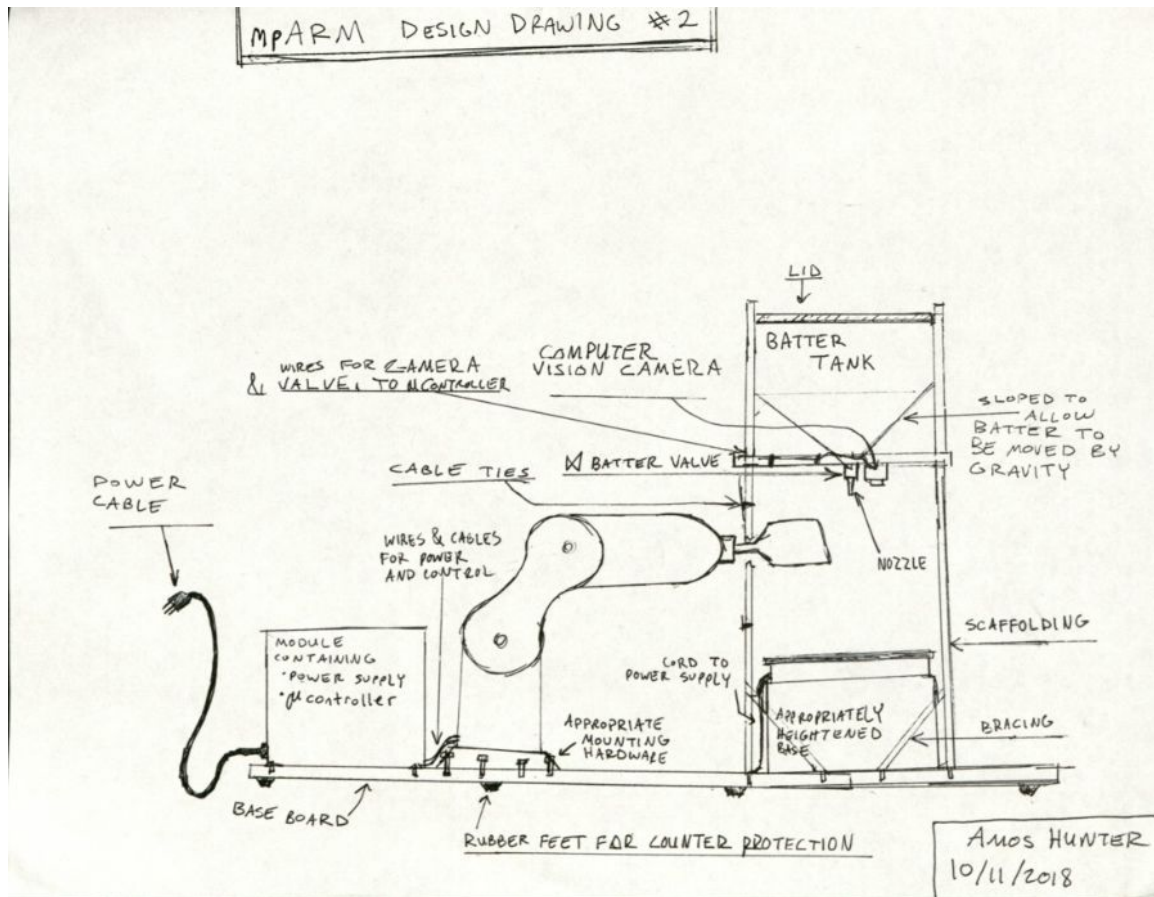 MPARM DESIGN DRAWING #2
LID
BATTER
TANK
COMPUTER
VISION CAMERA
WIRES FOR CAMERA
& VALVE, TO μCONTROLLER
SLOPED TO
ALLOW
BATTER TO
BE MOVED BY
GRAVITY
BATTER VALVE
CABLE TIES
POWER
CABLE
WIRES & CABLES
FOR POWER
AND CONTROL
NOZZLE
SCAFFOLDING
MODULE
CONTAINING
•POWER SUPPLY
•μcontroller
CORD TO
POWER SUPPLY
APPROPRIATE
MOUNTING
HARDWARE
APPROPRIATELY
HEIGHTENED
BASE
BRACING
BASE BOARD
RUBBER FEET FOR COUNTER PROTECTION
AMOS HUNTER
10/11/2018